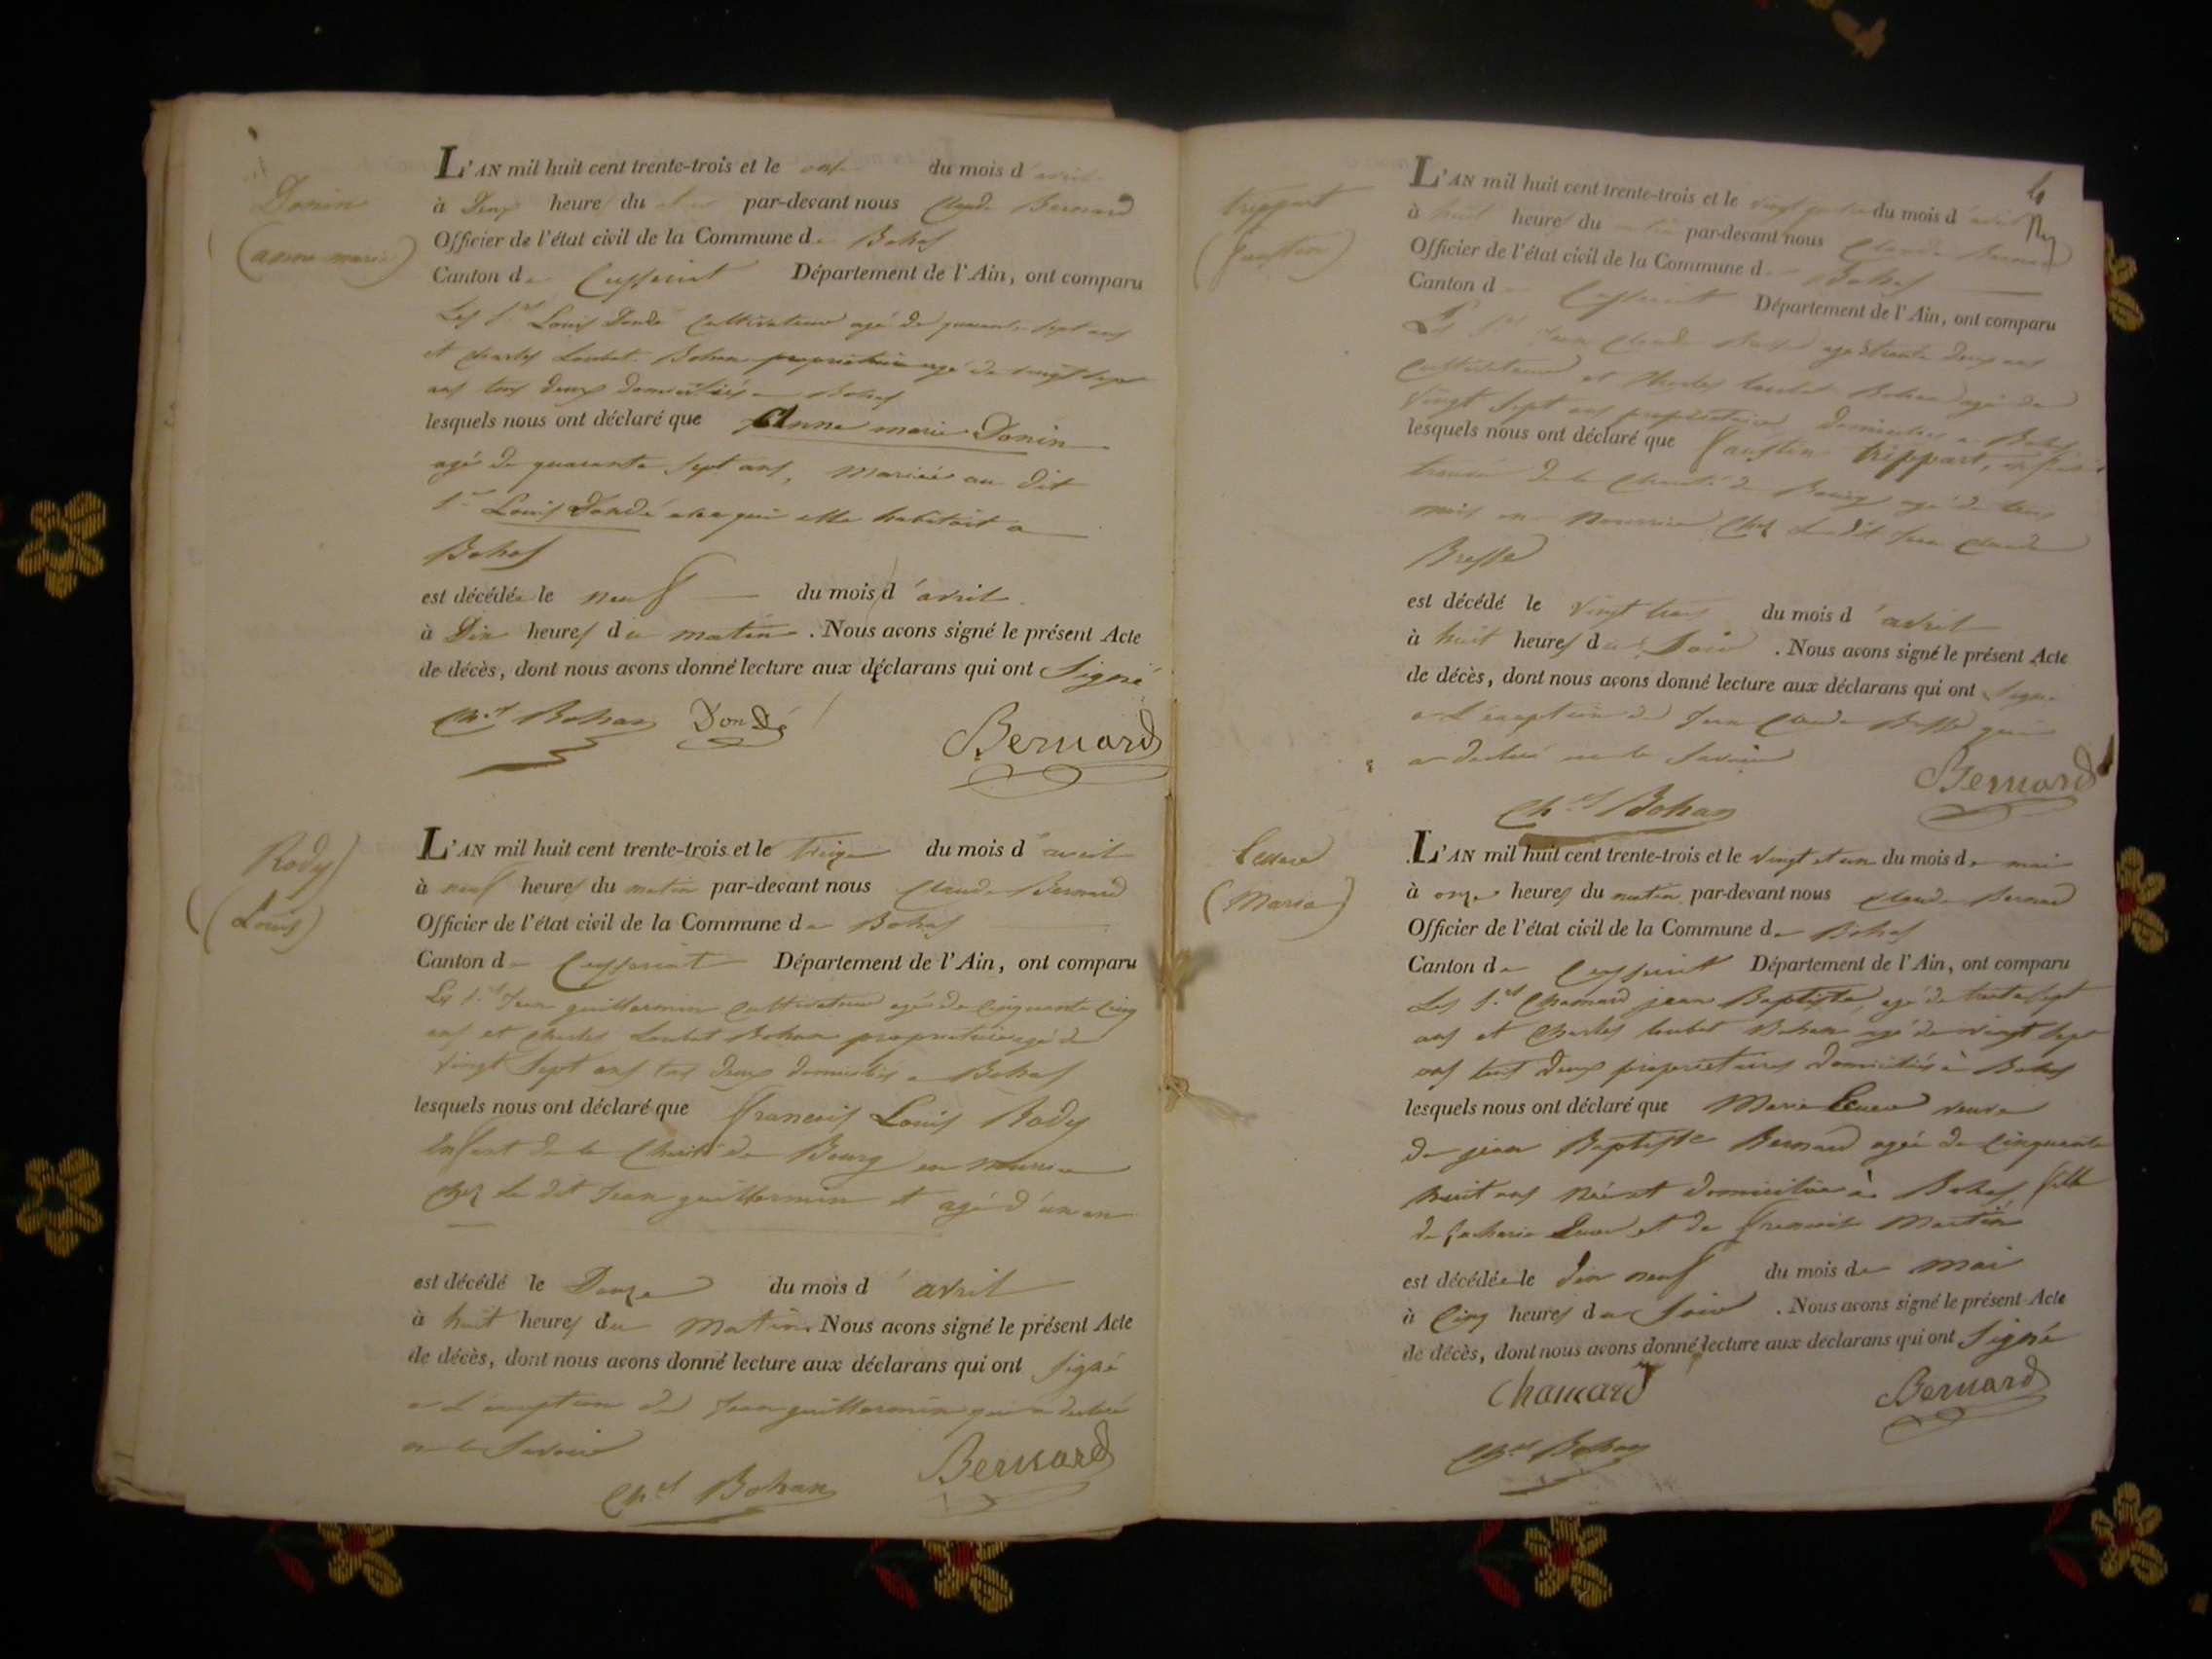 Donin
(anne marie)
L'AN mil huit cent trente-trois et le onze du mois d'avril
à Deux heures du soir par-devant nous Claude Bernard
Officier de l'état civil de la Commune de Bohas
Canton de Ceyseriat Département de l'Ain, ont comparu
Les Srs Louis Dondé Cultivateur agé de quarante sept ans
et Charles Loubat Bohan propriétaire agé de vingt sept
ans tous deux domiciliés a Bohas
lesquels nous ont déclaré que Anne marie Donin
agée de quarante sept ans, Mariée au dit
Sr Louis Dondé avec qui elle habitait a
Bohas
est décédée le neuf du mois d'avril
à Dix heures du matin. Nous avons signé le présent Acte
de décès, dont nous avons donné lecture aux déclarans qui ont Signé
Chs Bohan Dondé Bernard
Rody
(Louis)
L'AN mil huit cent trente-trois et le treize du mois d'avril
à neuf heures du matin par-devant nous Claude Bernard
Officier de l'état civil de la Commune de Bohas
Canton de Ceyseriat Département de l'Ain, ont comparu
Les Srs Jean guillermin Cultivateur agé de Cinquante Cinq
ans et Charles Loubat Bohan propriétaire agé de
vingt Sept ans tous deux domiciliés a Bohas
lesquels nous ont déclaré que francois Louis Rody
Enfant de la Charité de Bourg en nourrice
Chez Le dit Jean guillermin et agé d'un an
est décédé le Douze du mois d'avril
à huit heures du Matin. Nous avons signé le présent Acte
de décès, dont nous avons donné lecture aux déclarans qui ont signé
a L'exception de Jean guillermin qui a déclaré
ne le Savoir
Chs Bohan Bernard
trippart
(faustin)
L'AN mil huit cent trente-trois et le vingt quatre du mois d'avril
à huit heures du matin par-devant nous Claude Bernard
Officier de l'état civil de la Commune de Bohas
Canton de Ceyseriat Département de l'Ain, ont comparu
Les Srs Jean Claude Bresse agé de trente Deux ans
Cultivateur et Charles loubat Bohan agé de
vingt Sept ans propriétaire Domiciliés a Bohas
lesquels nous ont déclaré que faustin trippart, enfant
trouvé de la Charité de Bourg agé de trois
mois en nourrice Chez Le dit Jean Claude
Bresse
est décédé le vingt trois du mois d'avril
à huit heures du Soir. Nous avons signé le présent Acte
de décès, dont nous avons donné lecture aux déclarans qui ont signé
a L'exception de Jean Claude Bresse qui
a declaré ne le Savoir
Chs Bohan Bernard
(Maria)
L'AN mil huit cent trente-trois et le vingt et un du mois de mai
à onze heures du matin par-devant nous Claude Bernard
Officier de l'état civil de la Commune de Bohas
Canton de Ceyseriat Département de l'Ain, ont comparu
Les Srs Chamard jean Baptiste, agé de trente sept
ans et Charles loubat Bohan agé de vingt Sept
ans tous deux propriétaires Domiciliés à Bohas
lesquels nous ont déclaré que Marie veuve
de jean Baptiste Bernard agée de Cinquante
huit ans domiciliée à Bohas, fille
de Zacharie et de francoise Martin
est décédée le dix neuf du mois de mai
à Cinq heures du Soir. Nous avons signé le présent Acte
de décès, dont nous avons donné lecture aux déclarans qui ont Signé
Chamard Bernard
Chs Bohan